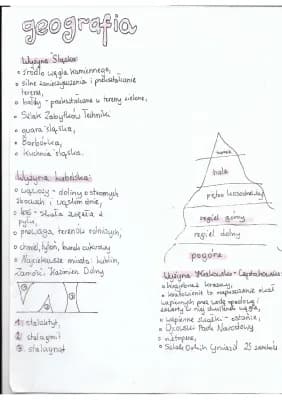 geografia
Wyżyna Śląska:
o źródło węgla kamiennego,
o silne zanieczyszczenia i przekształcenie
terenu,
o hałdy - przekształcane w tereny zielone,
o Szlak Zabytków Techniki
o gwara śląska,
o Barbórka,
o kuchnia śląska.
Wyżyna Lubelska:
o wąwozy - doliny o stromych
zboczach i wąskim dnie,
o less - skała zwięzła z
pyłu,
o przewaga terenów rolniczych,
o chmiel, tytoń, buraki cukrowy
o Największe miasta: Lublin,
Zamość, Kazimierz Dolny
1. stalaktyt,
2. stalagmit
3. stalagnat
turnie
hale
piętro kosodrzewiny
regiel górny
regiel dolny
pogórze
Wyżyna Krakowsko-Częstochowska:
o krajobraz krasowy,
o krasowienie to rozpuszczanie skał
wapiennych przez wodę opadową i
zawarty w niej dwutlenek węgla,
o wapienne skałki - ostańce,
o Ojcowski Park Narodowy
o nietoperze,
o Szlak Orlich Gniazd 25 zamków